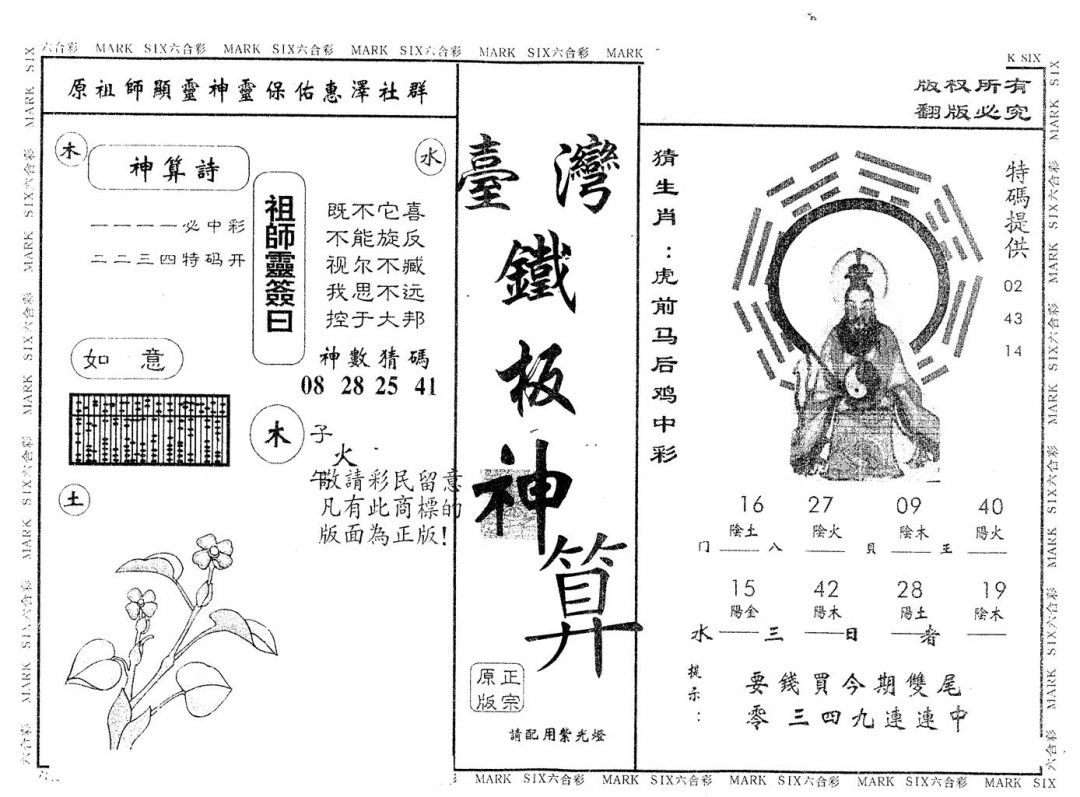 六合彩 MARK SIX六合彩 MARK SIX六合彩 MARK SIX六合彩 MARK SIX六合彩 MARK
K SIX
原祖師顯靈神靈保佑惠澤社群
木
神算詩
水
一一一一必中彩
二二三四特码开
祖師靈簽曰
既不它喜
不能旋反
视尔不臧
我思不远
控于大邦
神數猜碼
08 28 25 41
如意
木
子
火
午
敬請彩民留意
凡有此商標的
版面為正版!
土
臺灣
鐵
板
神
算
正宗
原版
請配用紫光燈
版权所有
翻版必究
猜生肖:虎前马后鸡中彩
特碼提供
02
43
14
16 27 09 40
陰土 陰火 陰木 陽火
门 八 貝 王
15 42 28 19
陽金 陽木 陽土 陰木
水 三 日 者
提示:
要錢買今期雙尾
零三四九連連中
MARK SIX六合彩 MARK SIX六合彩 MARK SIX六合彩 MARK SIX六合彩 MARK SIX
MARK SIX六合彩 MARK SIX六合彩 MARK SIX六合彩 MARK SIX六合彩 MARK SIX
MARK SIX六合彩 MARK SIX六合彩 MARK SIX六合彩 MARK SIX六合彩 MARK SIX